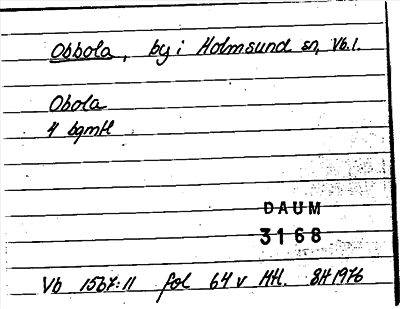 Obbola, by i Holmsund sn, Vb.l.
Obola
4 bgmtl
DAUM
3168
Vb 1567:11 fol 64 v Mtl. SH 1976